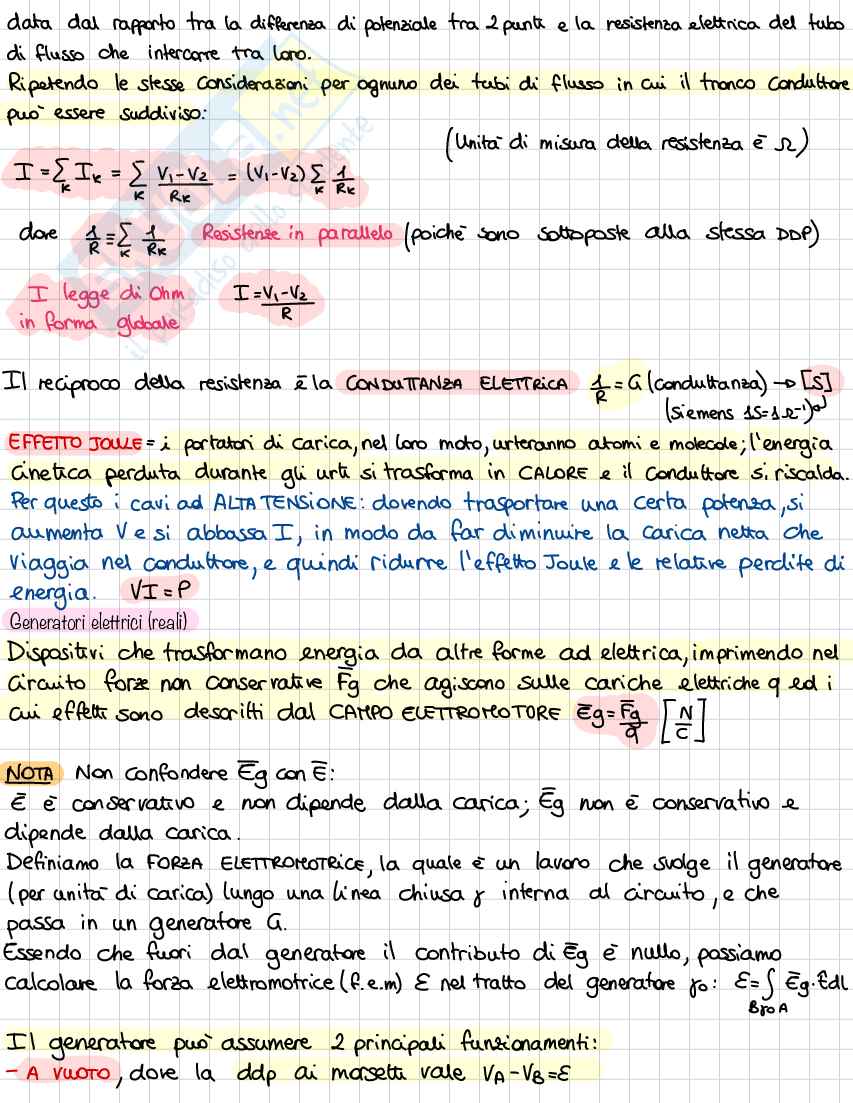 data dal rapporto tra la differenza di potenziale tra 2 punti e la resistenza elettrica del tubo
di flusso che intercorre tra loro.
Ripetendo le stesse considerazioni per ognuno dei tubi di flusso in cui il tronco conduttore
può essere suddiviso:
(Unità di misura della resistenza è Ω)
I = Σ_K I_K = Σ_K (V₁-V₂)/R_K = (V₁-V₂) Σ_K 1/R_K
dove 1/R = Σ_K 1/R_K Resistenze in parallelo (poiché sono sottoposte alla stessa DDP)
I legge di Ohm I = (V₁-V₂)/R
in forma globale
Il reciproco della resistenza è la CONDUTTANZA ELETTRICA 1/R = G (conduttanza) → [S]
(Siemens 1S=1Ω⁻¹)
EFFETTO JOULE = i portatori di carica, nel loro moto, urteranno atomi e molecole; l'energia
cinetica perduta durante gli urti si trasforma in CALORE e il conduttore si riscalda.
Per questo i cavi ad ALTA TENSIONE: dovendo trasportare una certa potenza, si
aumenta V e si abbassa I, in modo da far diminuire la carica netta che
viaggia nel conduttore, e quindi ridurre l'effetto Joule e le relative perdite di
energia. VI = P
Generatori elettrici (reali)
Dispositivi che trasformano energia da altre forme ad elettrica, imprimendo nel
circuito forze non conservative F̅g che agiscono sulle cariche elettriche q ed i
cui effetti sono descritti dal CAMPO ELETTROMOTORE E̅g = F̅g/q [N/C]
NOTA Non confondere E̅g con E̅:
E̅ è conservativo e non dipende dalla carica; E̅g non è conservativo e
dipende dalla carica.
Definiamo la FORZA ELETTROMOTRICE, la quale è un lavoro che svolge il generatore
(per unità di carica) lungo una linea chiusa γ interna al circuito, e che
passa in un generatore G.
Essendo che fuori dal generatore il contributo di E̅g è nullo, possiamo
calcolare la forza elettromotrice (f.e.m) Ɛ nel tratto del generatore γ₀: Ɛ = ∫_Bγ₀A E̅g · t̂dl
Il generatore può assumere 2 principali funzionamenti:
- A VUOTO, dove la ddp ai morsetti vale V_A - V_B = Ɛ